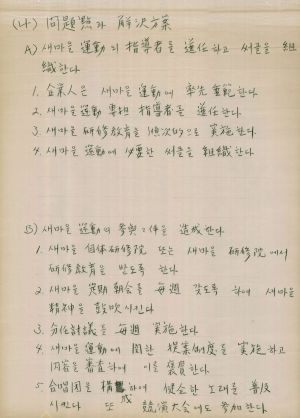 (나) 問題點과 解決方案
A) 새마을 運動의 指導者를 選任하고 써클을 組
織한다
1. 企業人은 새마을 運動에 率先垂範한다
2. 새마을 運動 專担 指導者를 選任한다
3. 새마을 研修教育을 順次的으로 実施한다
4. 새마을 運動에 必要한 써클을 組織한다
B) 새마을 運動의 參與 를 造成한다
1. 새마을 研修院 또는 새마을 研修院에서
研修教育을 받도록 한다
2. 새마을 定期 朝会를 每週 갖도록 하여 새마을
精神을 鼓吹시킨다
3. 分任討議를 每週 実施한다
4. 새마을 運動에 関한 提案制度를 実施하고
内容을 審査하여 이를 褒賞한다
5. 合唱団을 構成하여 健全한 노래를 普及
시킨다 또 競演大会에도 참가한다